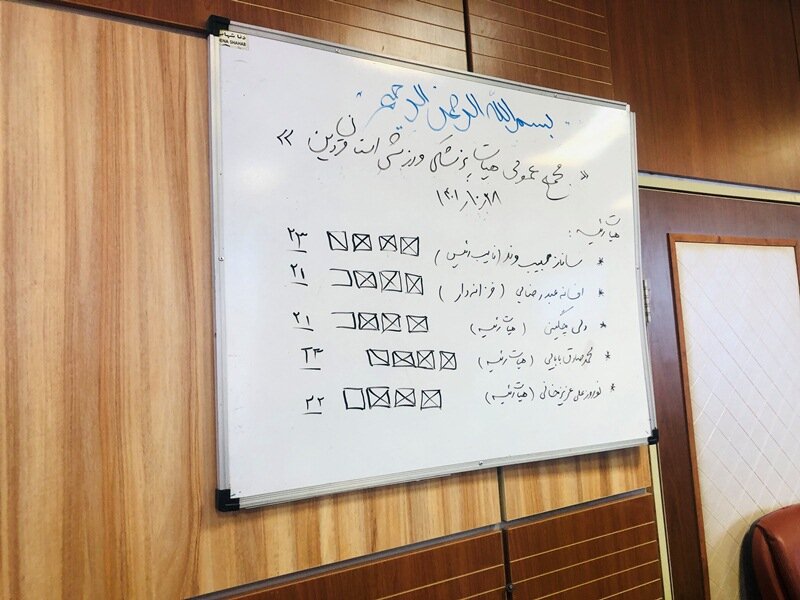 دنا شهاب
DENA SHAHAB
بسم الله الرحمن الرحیم
« مجمع عمومی هیات پزشکی ورزشی استان قزوین »
۱۴۰۱/۱۰/۲۸
هیات رئیسه:
* ساناز حبیب وند (نایب رئیس) ۲۳
* افسانه عبدرضایی (خزانه دار) ۲۱
* چگینی (هیات رئیسه) ۲۱
* محمد صادق بابایی (هیات رئیسه) ۲۳
* نوروز علی عزیزخانی (هیات رئیسه) ۲۲